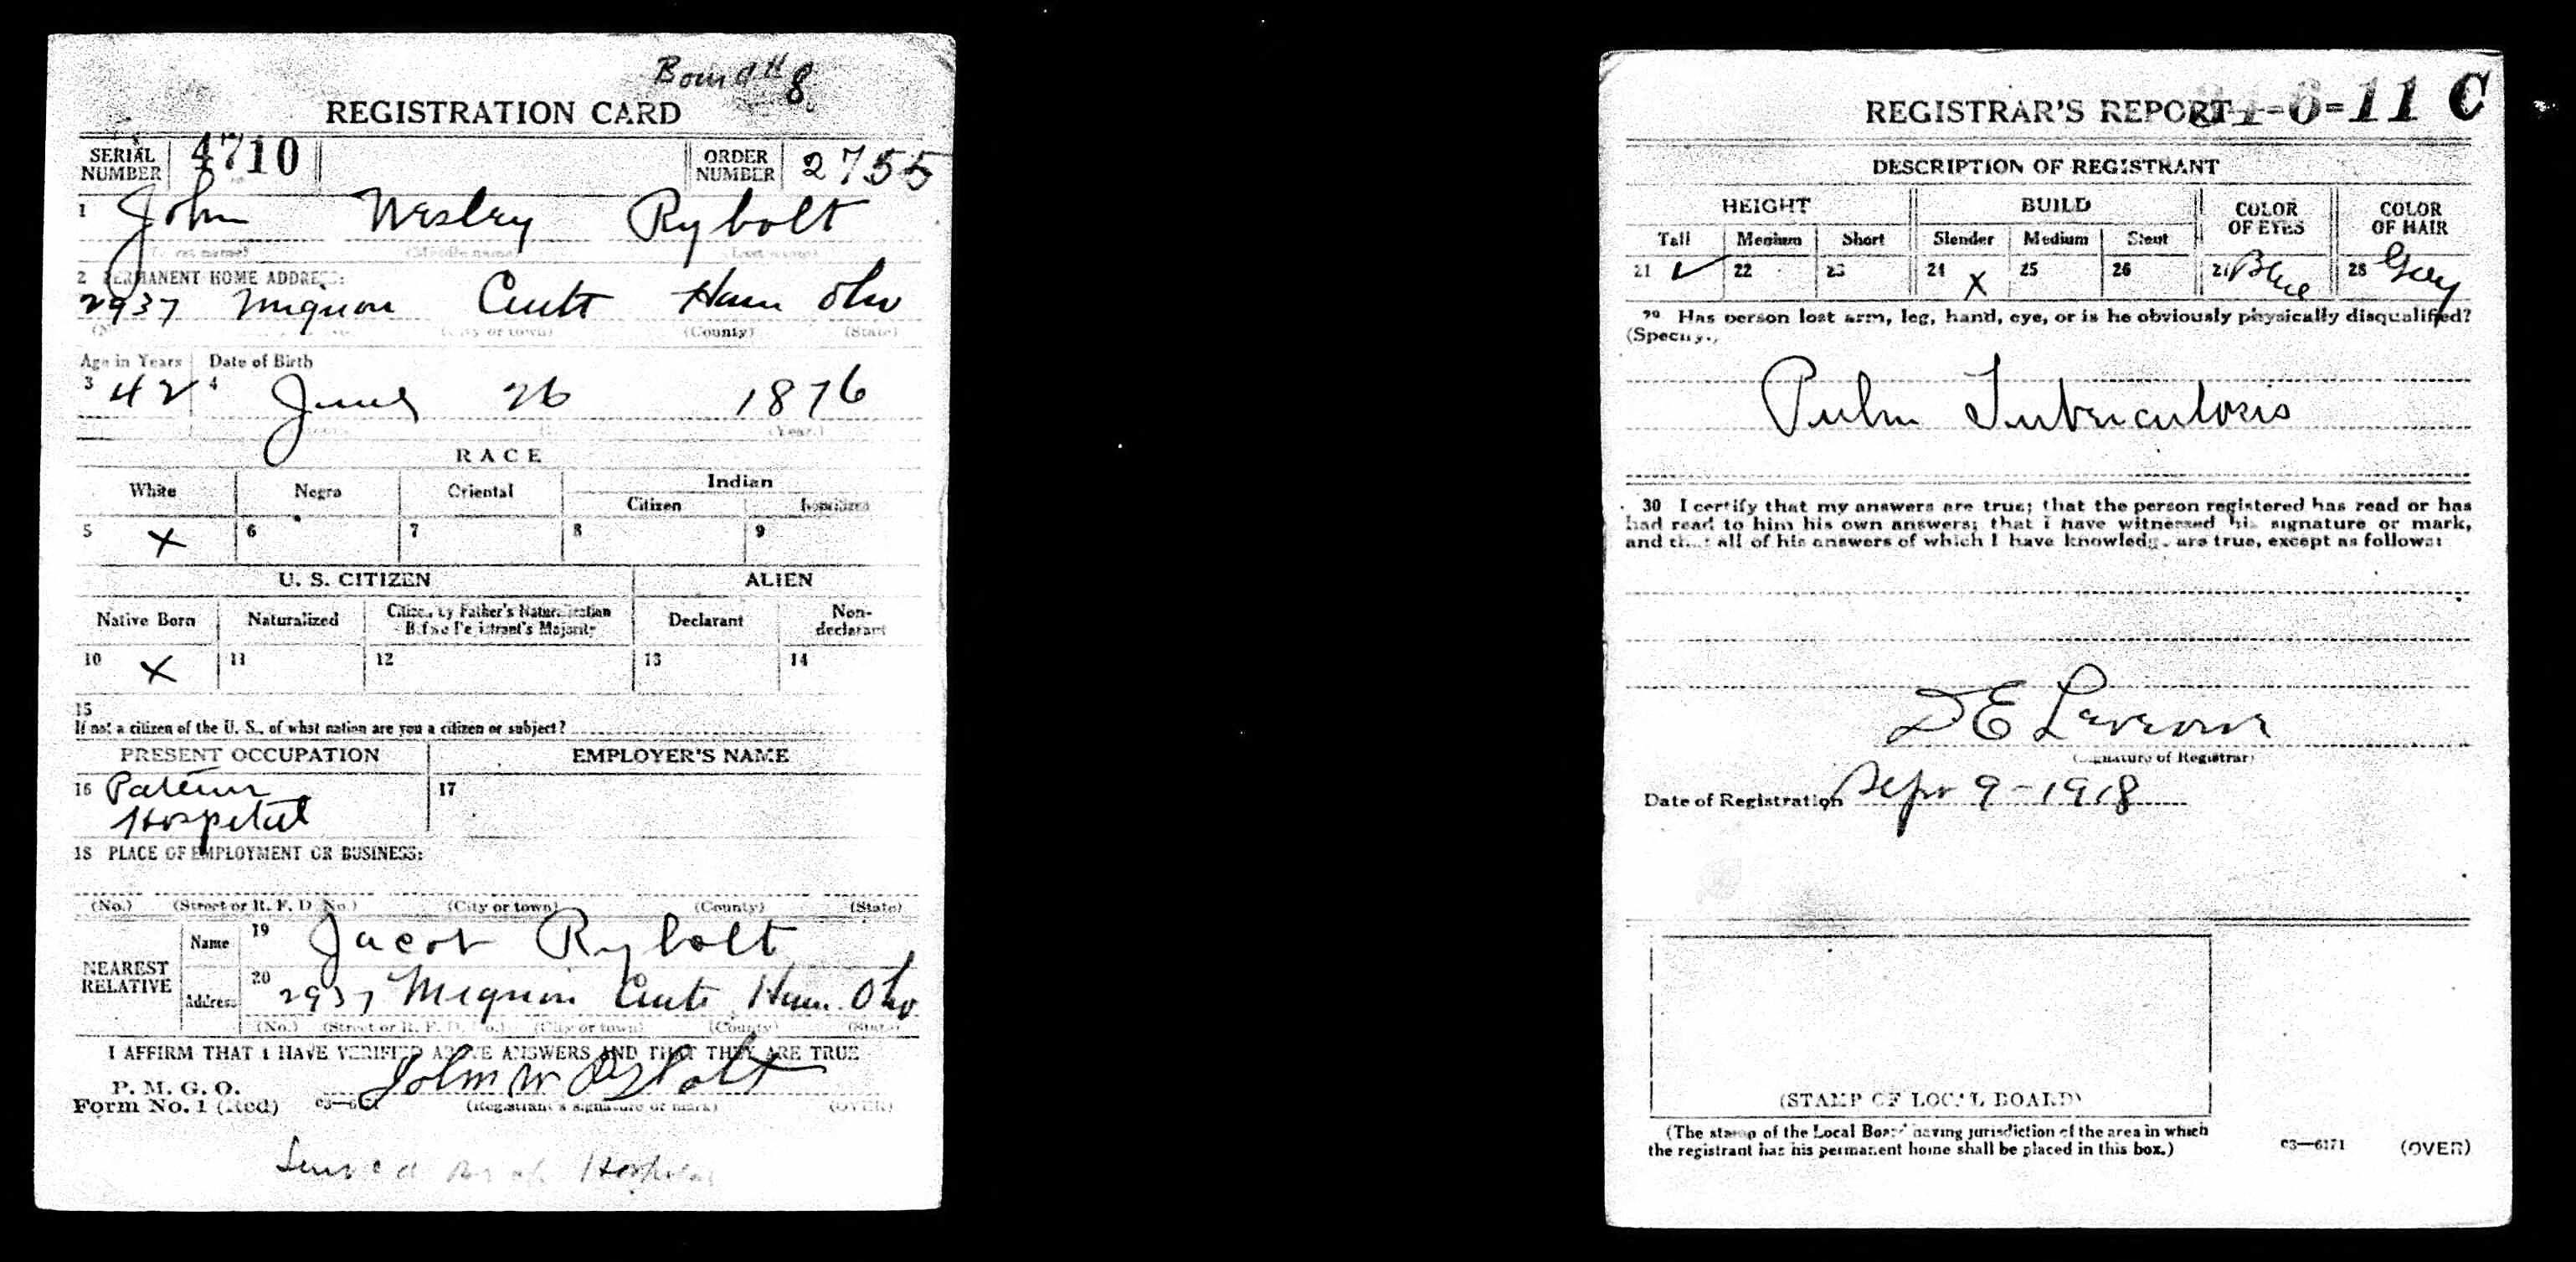 Board # 8.
REGISTRATION CARD
SERIAL NUMBER 4710 ORDER NUMBER 2755
1 John Wesley Rybolt
(First name) (Middle name) (Last name)
2 PERMANENT HOME ADDRESS:
2937 Mignon Ham Ohio
(City or town) (County) (State)
Age in Years Date of Birth
3 42 4 June 26 1876
(Year.)
RACE
White Negro Oriental Indian
Citizen Noncitizen
5 X 6 7 8 9
U. S. CITIZEN ALIEN
Native Born Naturalized Citizen by Father's Naturalization Before Registrant's Majority Declarant Non-declarant
10 X 11 12 13 14
15
If not a citizen of the U. S., of what nation are you a citizen or subject?
PRESENT OCCUPATION EMPLOYER'S NAME
16 Patient 17
Hospital
18 PLACE OF EMPLOYMENT OR BUSINESS:
(No.) (Street or R. F. D. No.) (City or town) (County) (State)
NEAREST RELATIVE Name 19 Jacob Rybolt
Address 20 2937 Mignon Ham. Ohio
(No.) (Street or R. F. D. No.) (City or town) (County) (State)
I AFFIRM THAT I HAVE VERIFIED ABOVE ANSWERS AND THAT THEY ARE TRUE
P. M. G. O.
Form No. 1 (Red) John W Rybolt
(Registrant's signature or mark) (OVER)
Hospital
REGISTRAR'S REPORT
-6-11 C
DESCRIPTION OF REGISTRANT
HEIGHT BUILD COLOR OF EYES COLOR OF HAIR
Tall Medium Short Slender Medium Stout
21 ✓ 22 23 24 X 25 26 27 Blue 28 Grey
29 Has person lost arm, leg, hand, eye, or is he obviously physically disqualified?
(Specify.)
Pulm Tuberculosis
30 I certify that my answers are true; that the person registered has read or has
had read to him his own answers; that I have witnessed his signature or mark,
and that all of his answers of which I have knowledge are true, except as follows:
(Signature of Registrar)
Date of Registration Sept 9-1918
(STAMP OF LOCAL BOARD)
(The stamp of the Local Board having jurisdiction of the area in which
the registrant has his permanent home shall be placed in this box.)
03—6171 (OVER)